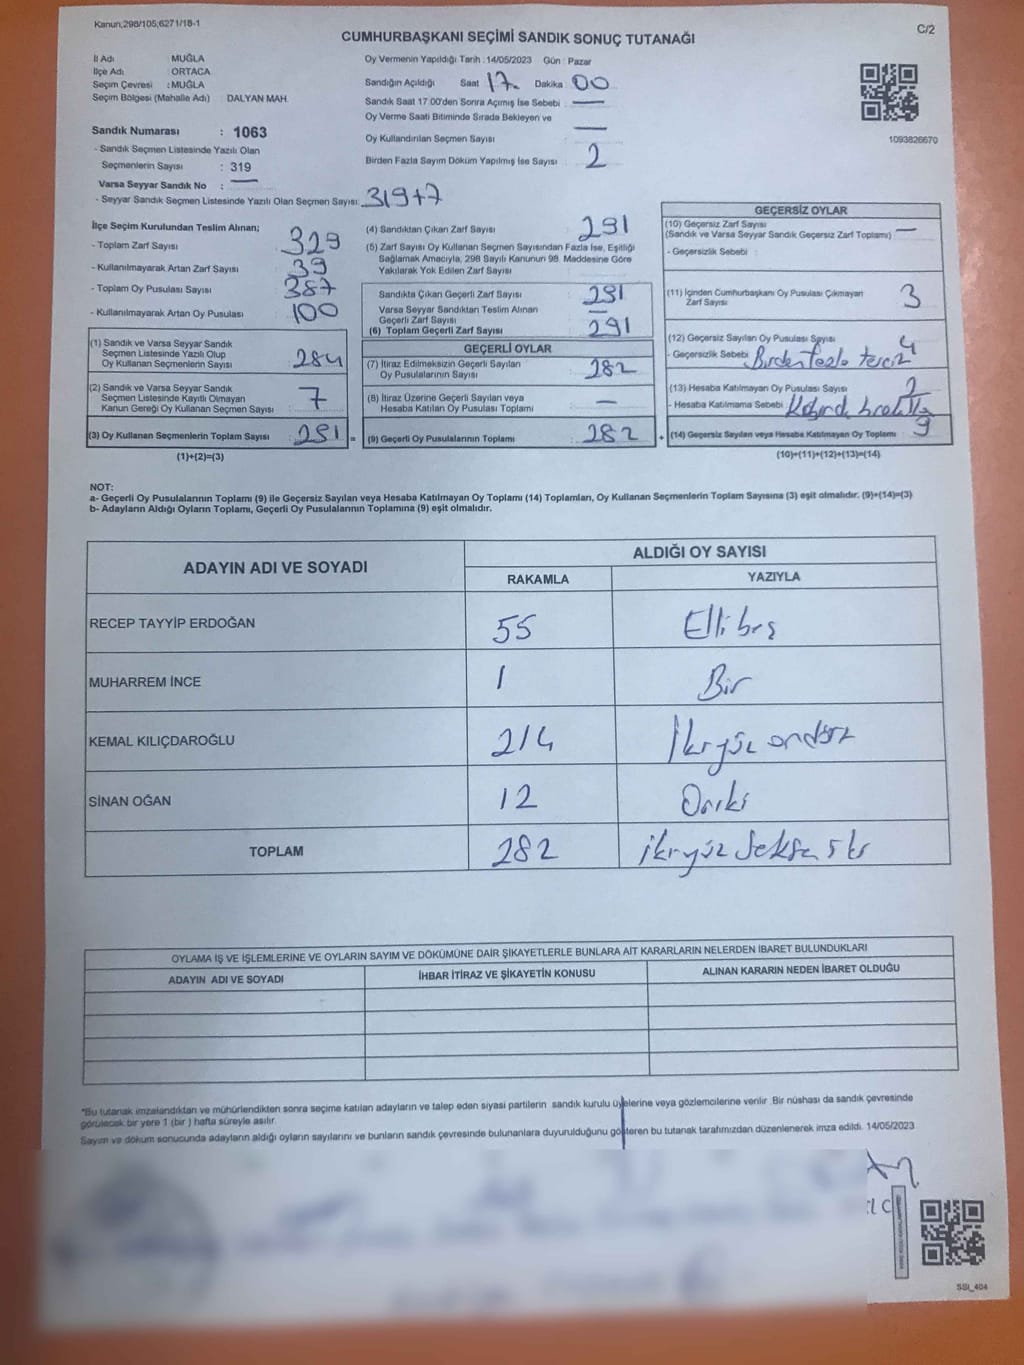 Kanun,298/105;6271/18-1
C/2
CUMHURBAŞKANI SEÇİMİ SANDIK SONUÇ TUTANAĞI
İl Adı : MUĞLA
İlçe Adı : ORTACA
Seçim Çevresi : MUĞLA
Seçim Bölgesi (Mahalle Adı) : DALYAN MAH.
Sandık Numarası : 1063
- Sandık Seçmen Listesinde Yazılı Olan
Seçmenlerin Sayısı : 319
Varsa Seyyar Sandık No : —
- Seyyar Sandık Seçmen Listesinde Yazılı Olan Seçmen Sayısı: 319+7
Oy Vermenin Yapıldığı Tarih : 14/05/2023 Gün : Pazar
Sandığın Açıldığı Saat 17 Dakika 00
Sandık Saat 17:00'den Sonra Açımış İse Sebebi : —
Oy Verme Saati Bitiminde Sırada Bekleyen ve
Oy Kullandırılan Seçmen Sayısı : —
Birden Fazla Sayım Döküm Yapılmış İse Sayısı : 2
1093826670
İlçe Seçim Kurulundan Teslim Alınan;
- Toplam Zarf Sayısı : 329
- Kullanılmayarak Artan Zarf Sayısı : 39
- Toplam Oy Pusulası Sayısı : 387
- Kullanılmayarak Artan Oy Pusulası : 100
(1) Sandık ve Varsa Seyyar Sandık
Seçmen Listesinde Yazılı Olup
Oy Kullanan Seçmenlerin Sayısı : 284
(2) Sandık ve Varsa Seyyar Sandık
Seçmen Listesinde Kayıtlı Olmayan
Kanun Gereği Oy Kullanan Seçmen Sayısı : 7
(3) Oy Kullanan Seçmenlerin Toplam Sayısı : 291 =
(1)+(2)=(3)
(4) Sandıktan Çıkan Zarf Sayısı : 291
(5) Zarf Sayısı Oy Kullanan Seçmen Sayısından Fazla İse, Eşitliği
Sağlamak Amacıyla, 298 Sayılı Kanunun 98. Maddesine Göre
Yakılarak Yok Edilen Zarf Sayısı :
Sandıkta Çıkan Geçerli Zarf Sayısı : 291
Varsa Seyyar Sandıktan Teslim Alınan
Geçerli Zarf Sayısı : —
(6) Toplam Geçerli Zarf Sayısı : 291
GEÇERLİ OYLAR
(7) İtiraz Edilmeksizin Geçerli Sayılan
Oy Pusulalarının Sayısı : 282
(8) İtiraz Üzerine Geçerli Sayılan veya
Hesaba Katılan Oy Pusulası Toplamı : —
(9) Geçerli Oy Pusulalarının Toplamı : 282 +
GEÇERSİZ OYLAR
(10) Geçersiz Zarf Sayısı : —
(Sandık ve Varsa Seyyar Sandık Geçersiz Zarf Toplamı)
- Geçersizlik Sebebi :
(11) İçinden Cumhurbaşkanı Oy Pusulası Çıkmayan
Zarf Sayısı : 3
(12) Geçersiz Sayılan Oy Pusulası Sayısı : 4
- Geçersizlik Sebebi : Birden fazla tercih
(13) Hesaba Katılmayan Oy Pusulası Sayısı : 2
- Hesaba Katılmama Sebebi :
(14) Geçersiz Sayılan veya Hesaba Katılmayan Oy Toplamı : 9
(10)+(11)+(12)+(13)=(14)
NOT:
a- Geçerli Oy Pusulalarının Toplamı (9) ile Geçersiz Sayılan veya Hesaba Katılmayan Oy Toplamı (14) Toplamları, Oy Kullanan Seçmenlerin Toplam Sayısına (3) eşit olmalıdır. (9)+(14)=(3)
b- Adayların Aldığı Oyların Toplamı, Geçerli Oy Pusulalarının Toplamına (9) eşit olmalıdır.
ADAYIN ADI VE SOYADI
ALDIĞI OY SAYISI
RAKAMLA YAZIYLA
RECEP TAYYİP ERDOĞAN 55 Ellibeş
MUHARREM İNCE 1 Bir
KEMAL KILIÇDAROĞLU 214 İkiyüz ondört
SİNAN OĞAN 12 Oniki
TOPLAM 282 ikiyüz seksen iki
OYLAMA İŞ VE İŞLEMLERİNE VE OYLARIN SAYIM VE DÖKÜMÜNE DAİR ŞİKAYETLERLE BUNLARA AİT KARARLARIN NELERDEN İBARET BULUNDUKLARI
ADAYIN ADI VE SOYADI İHBAR İTİRAZ VE ŞİKAYETİN KONUSU ALINAN KARARIN NEDEN İBARET OLDUĞU
*Bu tutanak imzalandıktan ve mühürlendikten sonra seçime katılan adayların ve talep eden siyasi partilerin sandık kurulu üyelerine veya gözlemcilerine verilir. Bir nüshası da sandık çevresinde
görülecek bir yere 1 (bir ) hafta süreyle asılır.
Sayım ve döküm sonucunda adayların aldığı oyların sayılarını ve bunların sandık çevresinde bulunanlara duyurulduğunu gösteren bu tutanak tarafımızdan düzenlenerek imza edildi. 14/05/2023
SSI_404